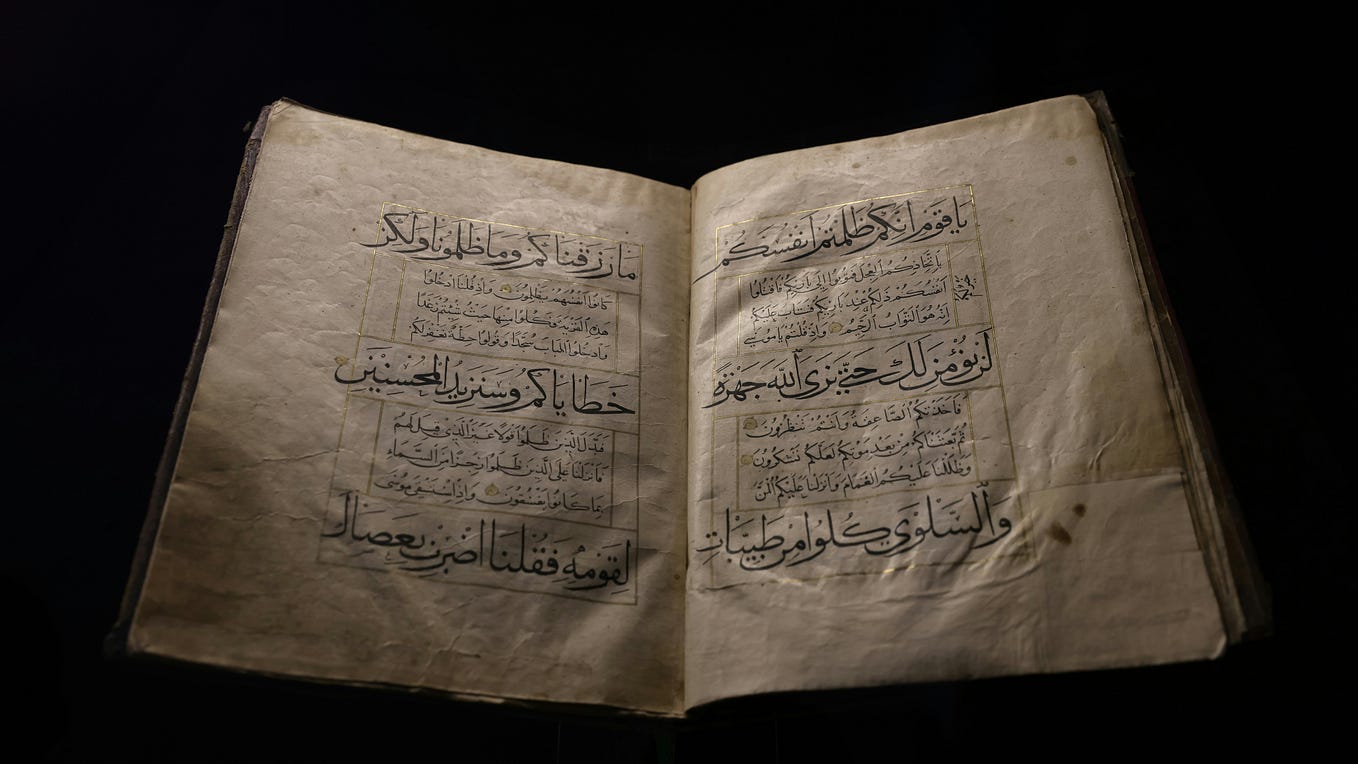 يا قوم انكم ظلمتم انفسكم
باتخاذكم العجل فتوبوا الى بارئكم فاقتلوا
انفسكم ذلكم عند بارئكم فتاب عليكم
انه هو التواب الرحيم واذ قلتم يا موسى
لن نؤمن لك حتى نرى الله جهرة
فاخذتكم الصاعقة وانتم تنظرون
ثم بعثناكم من بعد موتكم لعلكم تشكرون
وظللنا عليكم الغمام وانزلنا عليكم المن
والسلوى كلوا من طيبات
ما رزقناكم وما ظلمونا ولكن
كانوا انفسهم يظلمون واذ قلنا ادخلوا
هذه القرية فكلوا منها حيث شئتم رغدا
وادخلوا الباب سجدا وقولوا حطة نغفر لكم
خطاياكم وسنزيد المحسنين
فبدل الذين ظلموا قولا غير الذي قيل لهم
فانزلنا على الذين ظلموا رجزا من السماء
بما كانوا يفسقون واذ استسقى موسى
لقومه فقلنا اضرب بعصاك